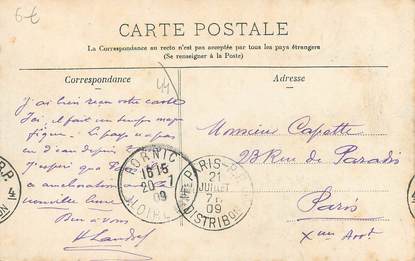 6€
CARTE POSTALE
La Correspondance au recto n'est pas acceptée par tous les pays étrangers
(Se renseigner à la Poste)
Correspondance
Adresse
44
J'ai bien reçu votre carte
Ici, il fait un temps ma
fique. Le pays
d'eau depuis
J'espère que
amélioration
nouvelle lune
Bien à vous
Monsieur Capette
23 Rue de Paradis
Paris
Xme Arrt
PORNIC
16 15
20 - 7
09
LOIRE
PARIS-P.P.
21
JUILLET
7
09
DISTRIBON
P.P.
4